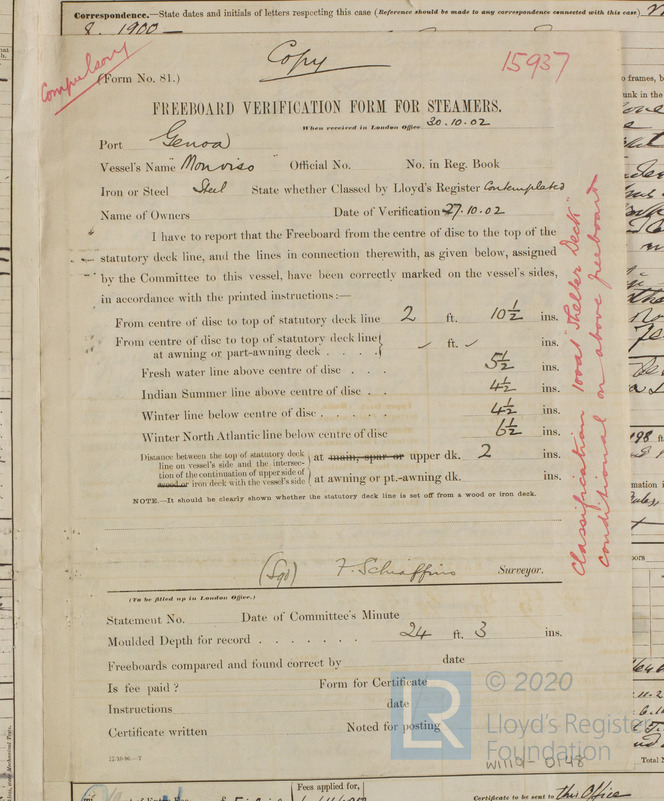 Correspondence.—State dates and initials of letters respecting this case (Reference should be made to any correspondence connected with this case)
8. 1900 —
Compulsory
Copy
15937
(Form No. 81.)
FREEBOARD VERIFICATION FORM FOR STEAMERS.
When received in London Office 30.10.02
Port Genoa
Vessel's Name "Monviso" Official No. No. in Reg. Book
Iron or Steel Steel State whether Classed by Lloyd's Register Contemplated
Name of Owners Date of Verification 27.10.02
I have to report that the Freeboard from the centre of disc to the top of the
statutory deck line, and the lines in connection therewith, as given below, assigned
by the Committee to this vessel, have been correctly marked on the vessel's sides,
in accordance with the printed instructions:—
From centre of disc to top of statutory deck line 2 ft. 10 1/2 ins.
From centre of disc to top of statutory deck line
at awning or part-awning deck . . . . ✓ ft. ✓ ins.
Fresh water line above centre of disc . . . 5 1/2 ins.
Indian Summer line above centre of disc . . 4 1/2 ins.
Winter line below centre of disc . . . . . 4 1/2 ins.
Winter North Atlantic line below centre of disc 6 1/2 ins.
Distance between the top of statutory deck
line on vessel's side and the intersec-
tion of the continuation of upper side of
wood or iron deck with the vessel's side
at main, spar or upper dk. 2 ins.
at awning or pt.-awning dk. ins.
NOTE.—It should be clearly shown whether the statutory deck line is set off from a wood or iron deck.
(Sgd) F. Schiaffino Surveyor.
(To be filled up in London Office.)
Statement No. Date of Committee's Minute
Moulded Depth for record . . . . . . . 24 ft. 3 ins.
Freeboards compared and found correct by date
Is fee paid ? Form for Certificate
Instructions date
Certificate written Noted for posting
12-10-96.—T
Classification 100A1 "Shelter Deck"
conditional on above freeboard
LR
© 2020
Lloyd's Register
Foundation
W1119-0148
Fees applied for,
Certificate to be sent to this Office